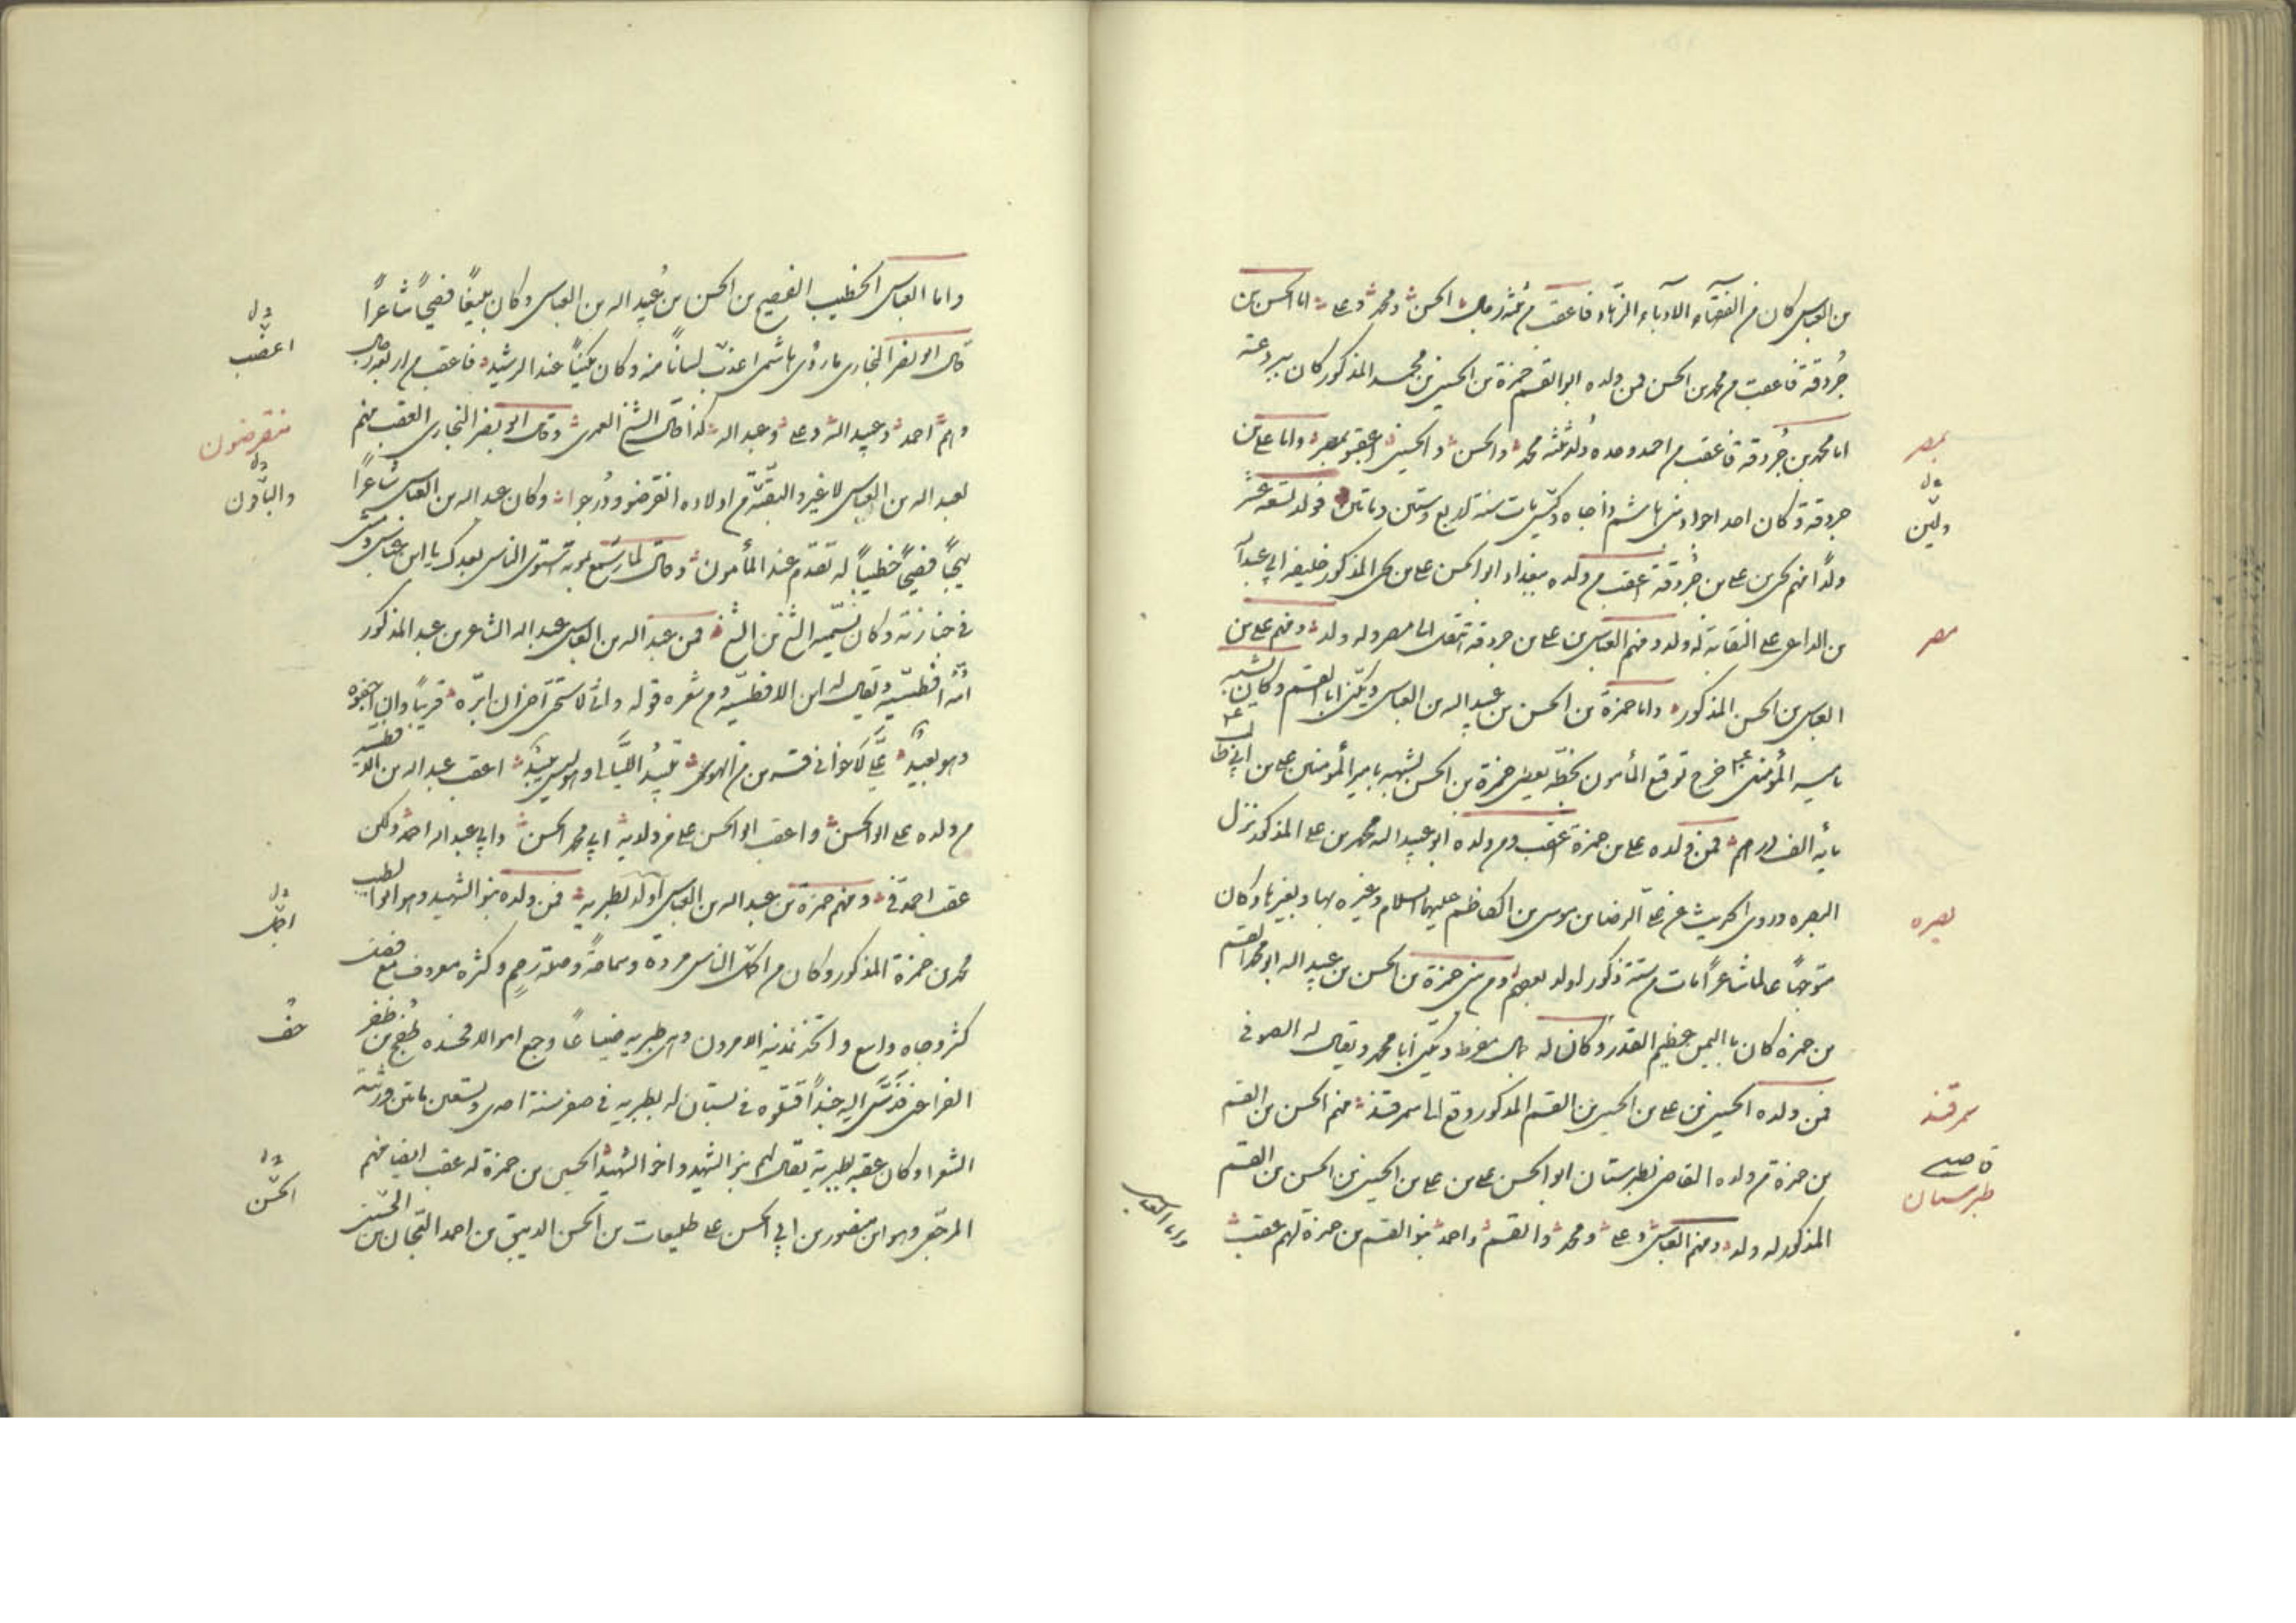 بن العباس كان من الفقهاء الادباء الزهاد فاعقب من ثلثه رجال الحسن ومحمد وعلي اما الحسن بن
جردقة فاعقب من محمد بن الحسن فمن ولده ابو القسم حمزة بن الحسين بن محمد المذكور كان ببردعة
اما محمد بن جردقة فاعقب من احمد وحده ولد ثلثه محمد والحسن والحسين اعقبو بمصر واما علي بن
جردقة وكان احد اجواد بني هاشم ذا جاه مات سنة اربع وستين وماتين فولد تسعة عشر
ولدًا منهم يحيى بن علي بن جردقة اعقب من ولده ببغداد ابو الحسن علي بن يحيى المذكور خليفة ابي عبد الله
بن الداعي علي النقابة له ولد ومنهم العباس بن علي بن جردقة انتقل الى مصر وله ولد ومنهم علي بن
العباس بن الحسن المذكور واما حمزة بن الحسن بن عبيد الله بن العباس ويكنى ابا القسم وكان يشبه
بامير المؤمنين خرج توقيع المأمون بخطه يعطى حمزة بن الحسن لشبهه بامير المؤمنين علي بن ابي طالب
مأية الف درهم فمن ولده علي بن حمزة اعقب ومن ولده ابو عبيد الله محمد بن علي المذكور نزل
البصره وروى الحديث عن علي الرضا بن موسى بن الكاظم عليهما السلام وغيره بها وبغيرها وكان
متوجهًا عالما شاعرًا مات من ستة ذكور اولد بعضهم ومن بني حمزة بن الحسن بن عبيد الله ابو محمد القسم
بن حمزه كان باليمن عظيم القدر وكان له جمال مفرط ويكنى أبا محمد ويقال له الصوفي
فمن ولده الحسين بن علي بن الحسين بن القسم المذكور وقع الى سمرقند منهم الحسن بن القسم
بن حمزة من ولده القاضي بطبرستان ابو الحسن علي بن علي بن الحسين بن الحسن بن القسم
المذكور له ولد ومنهم العباس وعلي ومحمد والقسم واحمد بنو القسم بن حمزة لهم عقب
بمصر
مصر
بصره
سمرقند
قاضي
طبرستان
واما العباس
واما العباس الخطيب الفصيح بن الحسن بن عبيد الله بن العباس وكان بليغًا فصيحًا شاعرًا
قال ابو نصر البخاري ما رؤي هاشمي اعذب لسانًا منه وكان مكينًا عند الرشيد فاعقب من اربعة رجال
وهم احمد وعبيد الله وعلي وعبد الله كذا قال الشيخ العمري وقال ابو نصر البخاري العقب منهم
لعبد الله بن العباس لا غير والبقية من اولاده انقرضوا ودرجوا وكان عبد الله بن العباس شاعرًا
فصيحًا خطيبًا له تقدم عند المأمون وقال لما سمع بموته استوى الناس بعدك يا ابن عباس ومشى
في جنازته وكان يسميه الشيخ بن الشيخ فمن عبد الله بن العباس عبد الله الشاعر بن عبد المذكور
امه افطسية ويقال له ابن الافطسية ومن شعره قوله واني لاستحيي اخي ان ابره قريبًا وان اجفوه
وهو بعيد
من ولده علي ابو الحسن واعقب ابو الحسن علي من ولديه ابي محمد الحسن وابي عبد الله احمد ولكن
ومنهم حمزة بن عبد الله بن العباس اولد بطبرية فمن ولده بنو الشهيد وهو ابو الطيب
محمد بن حمزة المذكور وكان من اكمل الناس مروة وسماحةً وصلة رحم وكثره معروف مع فضل
كثير وجاه واسع واتخذ بمدينة الاردن وهي طبريه ضياعًا وجمع اموالا فحسده طغج بن جف
الفراغني فدس اليه جندًا قتلوه في بستان له بطبريه في صفر سنة احدى وتسعين وماتين ورثته
الشعراء وكان عقبه بطبرية يقال لهم بنو الشهيد واخو الشهيد الحسين بن حمزة له عقب ايضا منهم
المرجعي وهو ابن منصور بن ابي الحسن علي طليعات بن الحسن الديبق بن احمد العجان بن الحسين
اعقب
منقرضون
والباقون
جف
الحسن